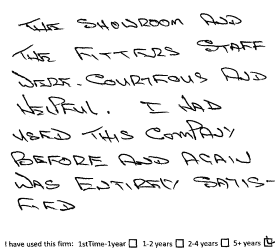 THE SHOWROOM AND
THE FITTERS STAFF
WERE. COURTEOUS AND
HELPFUL. I HAD
USED THIS COMPANY
BEFORE AND AGAIN
WAS ENTIRELY SATIS-
FIED
I have used this firm: 1stTime-1year ☐ 1-2 years ☐ 2-4 years ☐ 5+ years ☑